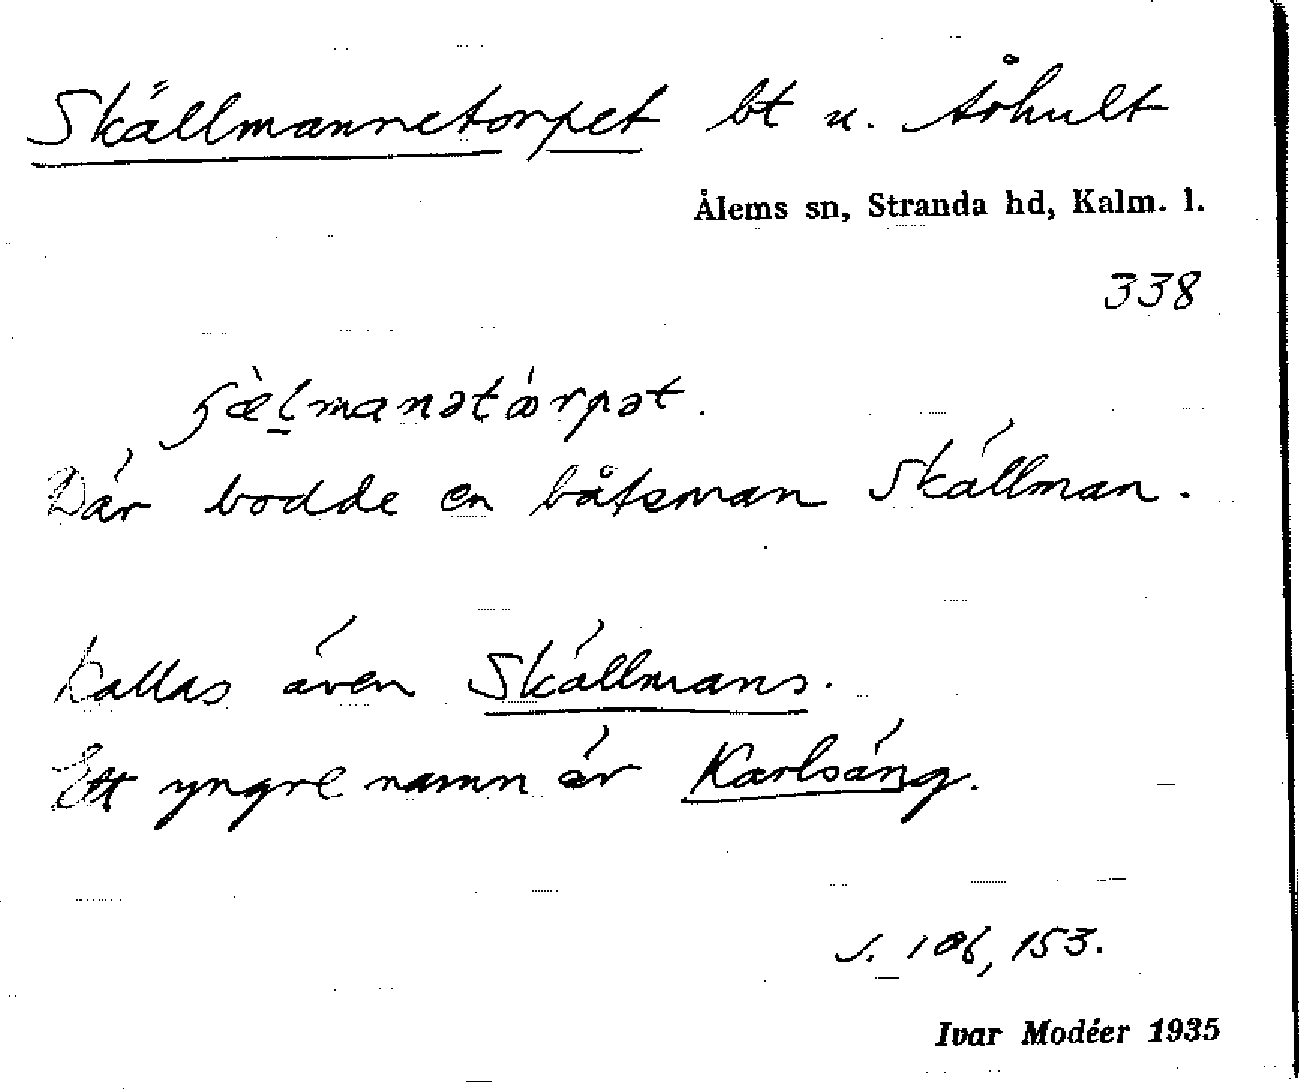 Skällmannetorpet bt u. Århult
Ålems sn, Stranda hd, Kalm. l.
338
Där bodde en båtsman Skällman.
Kallas även Skällmans.
Ett yngre namn är Karlsäng.
s. 106, 153.
Ivar Modéer 1935